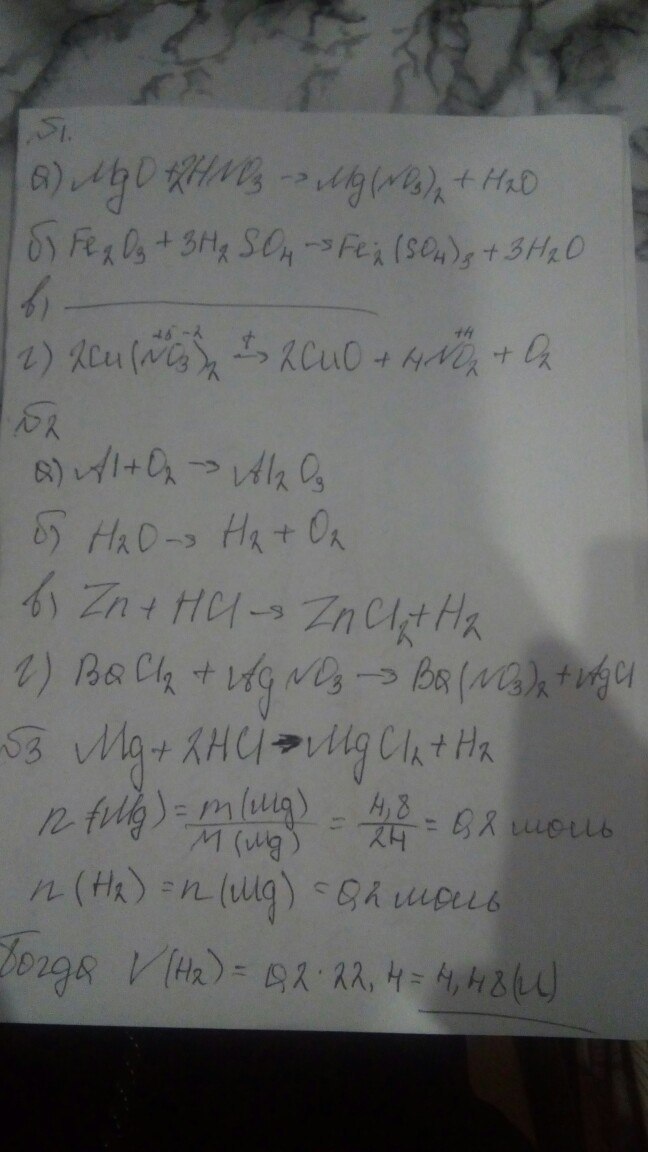 Б1.
а) MgO + 2HNO₃ → Mg(NO₃)₂ + H₂O
б) Fe₂O₃ + 3H₂SO₄ → Fe₂(SO₄)₃ + 3H₂O
в)
+5 -2 +4
г) 2Cu(NO₃)₂ t→ 2CuO + 4NO₂ + O₂
Б2
а) Al + O₂ → Al₂O₃
б) H₂O → H₂ + O₂
в) Zn + HCl → ZnCl₂ + H₂
г) BaCl₂ + AgNO₃ → Ba(NO₃)₂ + AgCl
Б3 Mg + 2HCl → MgCl₂ + H₂
n(Mg) = m(Mg)/M(Mg) = 4,8/24 = 0,2 моль
n(H₂) = n(Mg) = 0,2 моль
Тогда V(H₂) = 0,2 · 22,4 = 4,48(л)